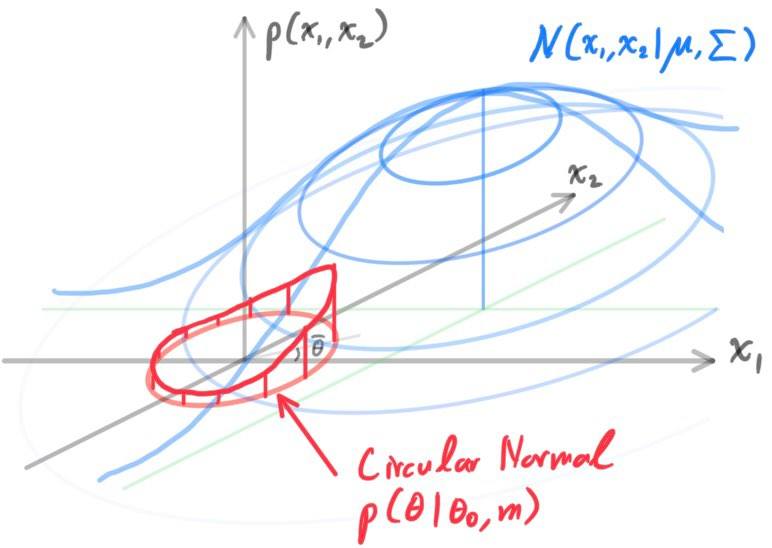 p(x₁,x₂)
N(x₁,x₂|μ,Σ)
x₂
θ̄
x₁
Circular Normal
p(θ|θ₀,m)